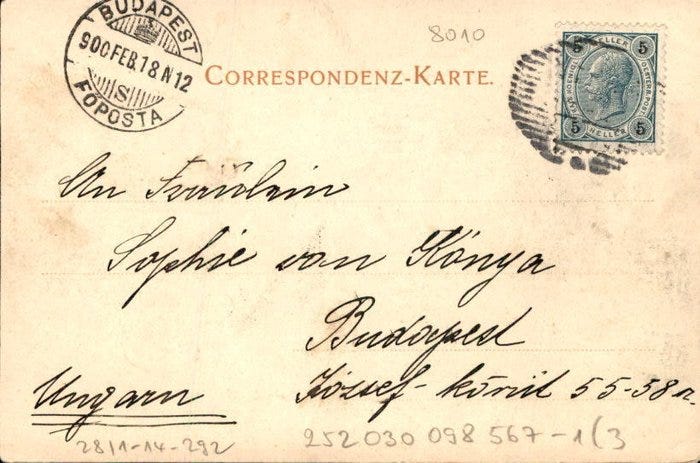 BUDAPEST
900 FEB. 18 N 12
S
FŐPOSTA
8010
CORRESPONDENZ-KARTE.
5 HELLER 5
5 HELLER 5
An Fräulein
Sophie von Kónya
Budapest
Ungarn
József-körút 55-58
28/1-14-292
252 030 098 567-1(3